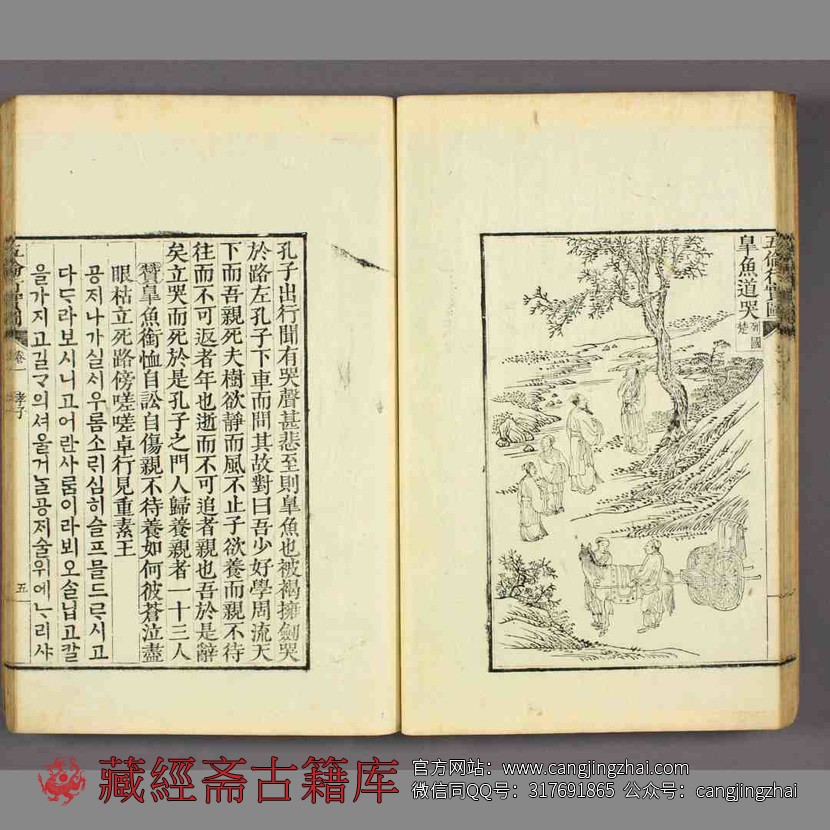 五倫行實圖
皐魚道哭
列國
楚
孔子出行聞有哭聲甚悲至則皐魚也被褐擁劍哭
於路左孔子下車而問其故對曰吾少好學周流天
下而吾親死夫樹欲靜而風不止子欲養而親不待
往而不可返者年也逝而不可追者親也吾於是辭
矣立哭而死於是孔子之門人歸養親者一十三人
贊皐魚銜恤自訟自傷親不待養如何彼蒼泣盡
眼枯立死路傍嗟嗟卓行見重素王
공ᄌᆡ나가실ᄉᆡ우롬소ᄅᆡ심히슬프믈드ᄅᆞ시고
다ᄃᆞ라보시니고어란사ᄅᆞᆷ이라뵈오ᄉᆞᆯ닙고칼
을가지고길ᄀᆞ의셔울거ᄂᆞᆯ공ᄌᆡ술위에ᄂᆞ리샤
五倫行實圖 卷一 孝子 五
藏經斋古籍库
官方网站：www.cangjingzhai.com
微信同QQ号：317691865 公众号：cangjingzhai